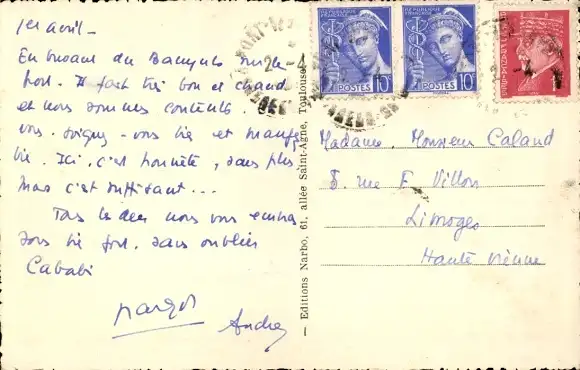 1er avril -
En buvant du Banyuls sur le
port. Il fait très bon et chaud
et nous sommes contents.
vous. Soignez-vous bie et mangez
bie. Ici, c'est honnête, sans plus
mais c'est suffisant...
Tous les deux nous vous embra
sons bie fort, sans oublier
Cababi
Margot
André
— Editions Narbo, 61, allée Saint-Agne, Toulouse
REPUBLIQUE FRANÇAISE
POSTES 10c
REPUBLIQUE FRANÇAISE
POSTES 10c
PORT-
2-4
Madame, Monsieur Caland
8. rue F. Villon
Limoges
Haute Vienne